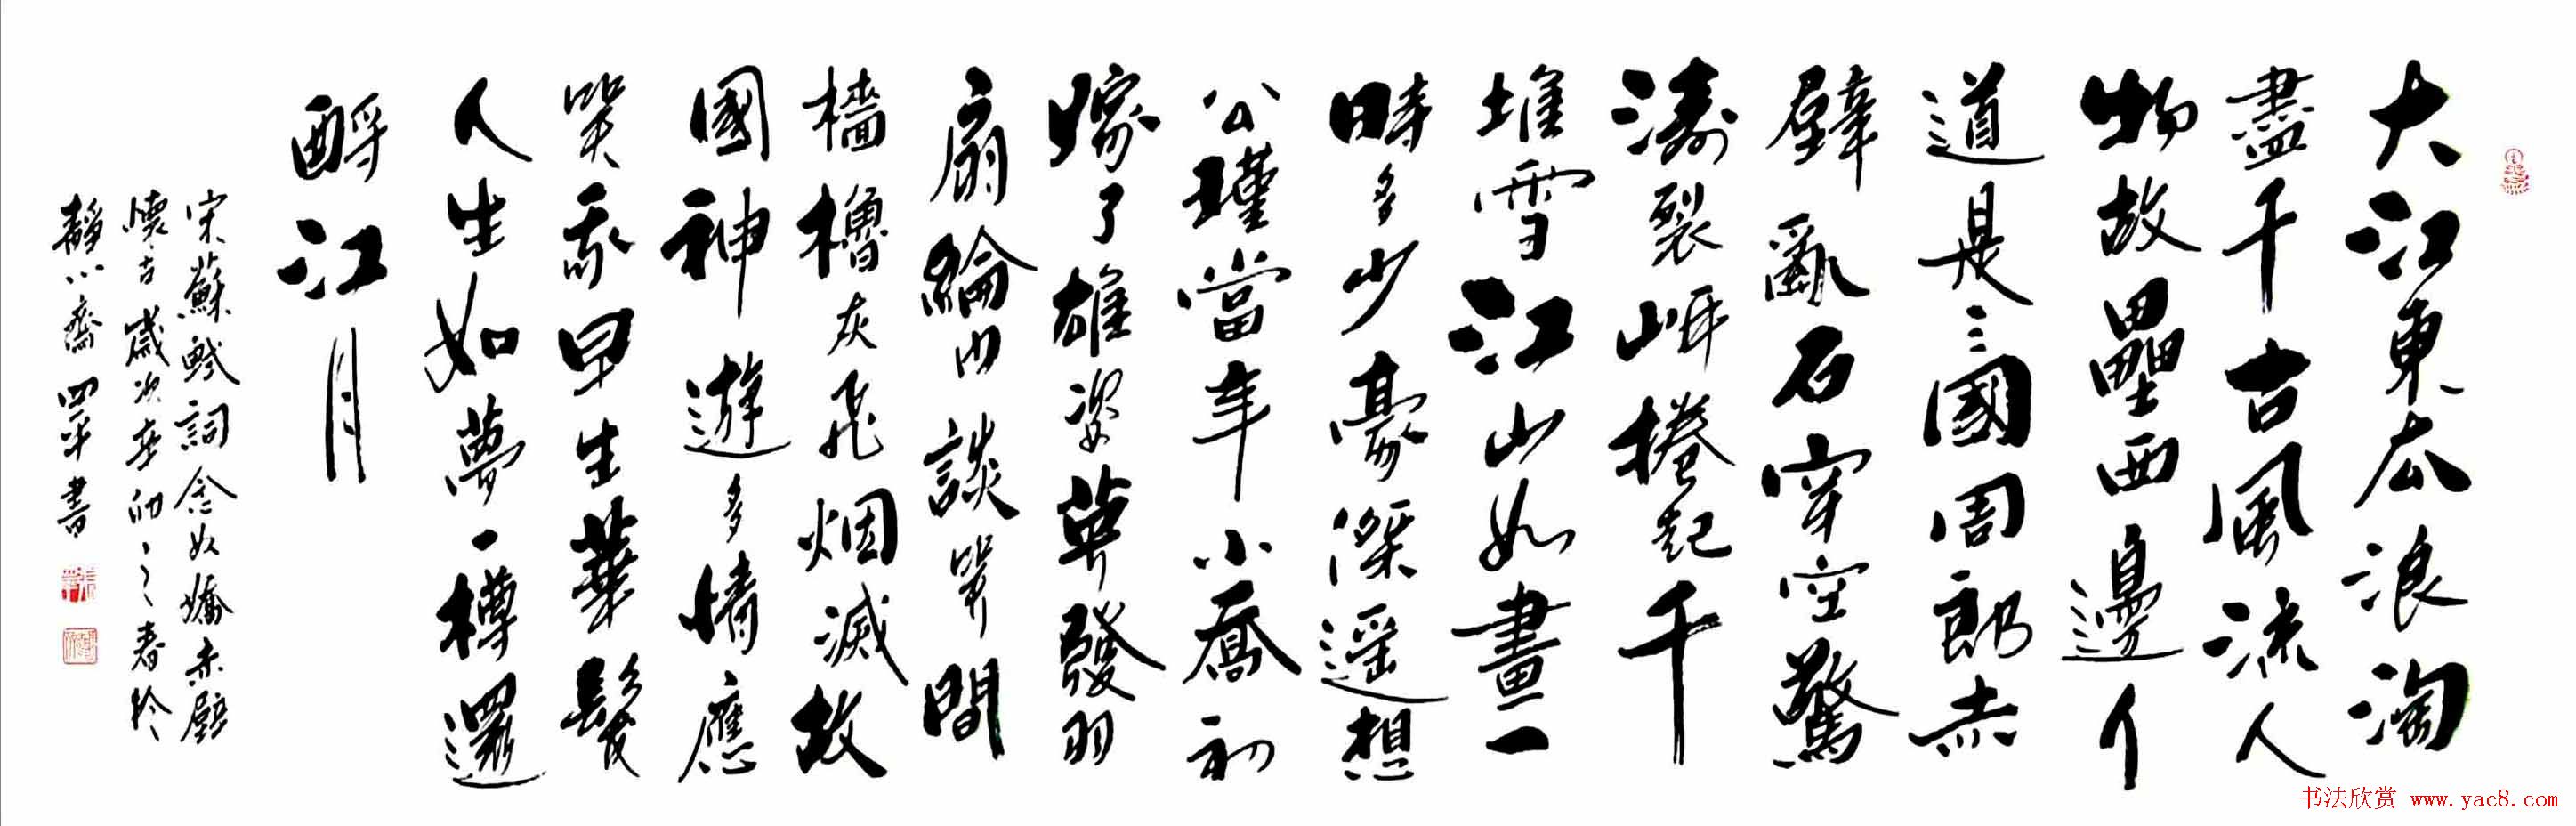 大江東去浪淘
盡千古風流人
物故壘西邊人
道是三國周郎赤
壁亂石穿空驚
濤裂岸捲起千
堆雪江山如畫一
時多少豪傑遥想
公瑾當年小喬初
嫁了雄姿英發羽
扇綸巾談笑間
檣櫓灰飛烟滅故
國神遊多情應
笑我早生華髮
人生如夢一樽還
酹江月
宋蘇軾詞念奴嬌赤壁
懷古歲次辛卯之春於
靜心齋四平書
书法欣赏 www.yac8.com